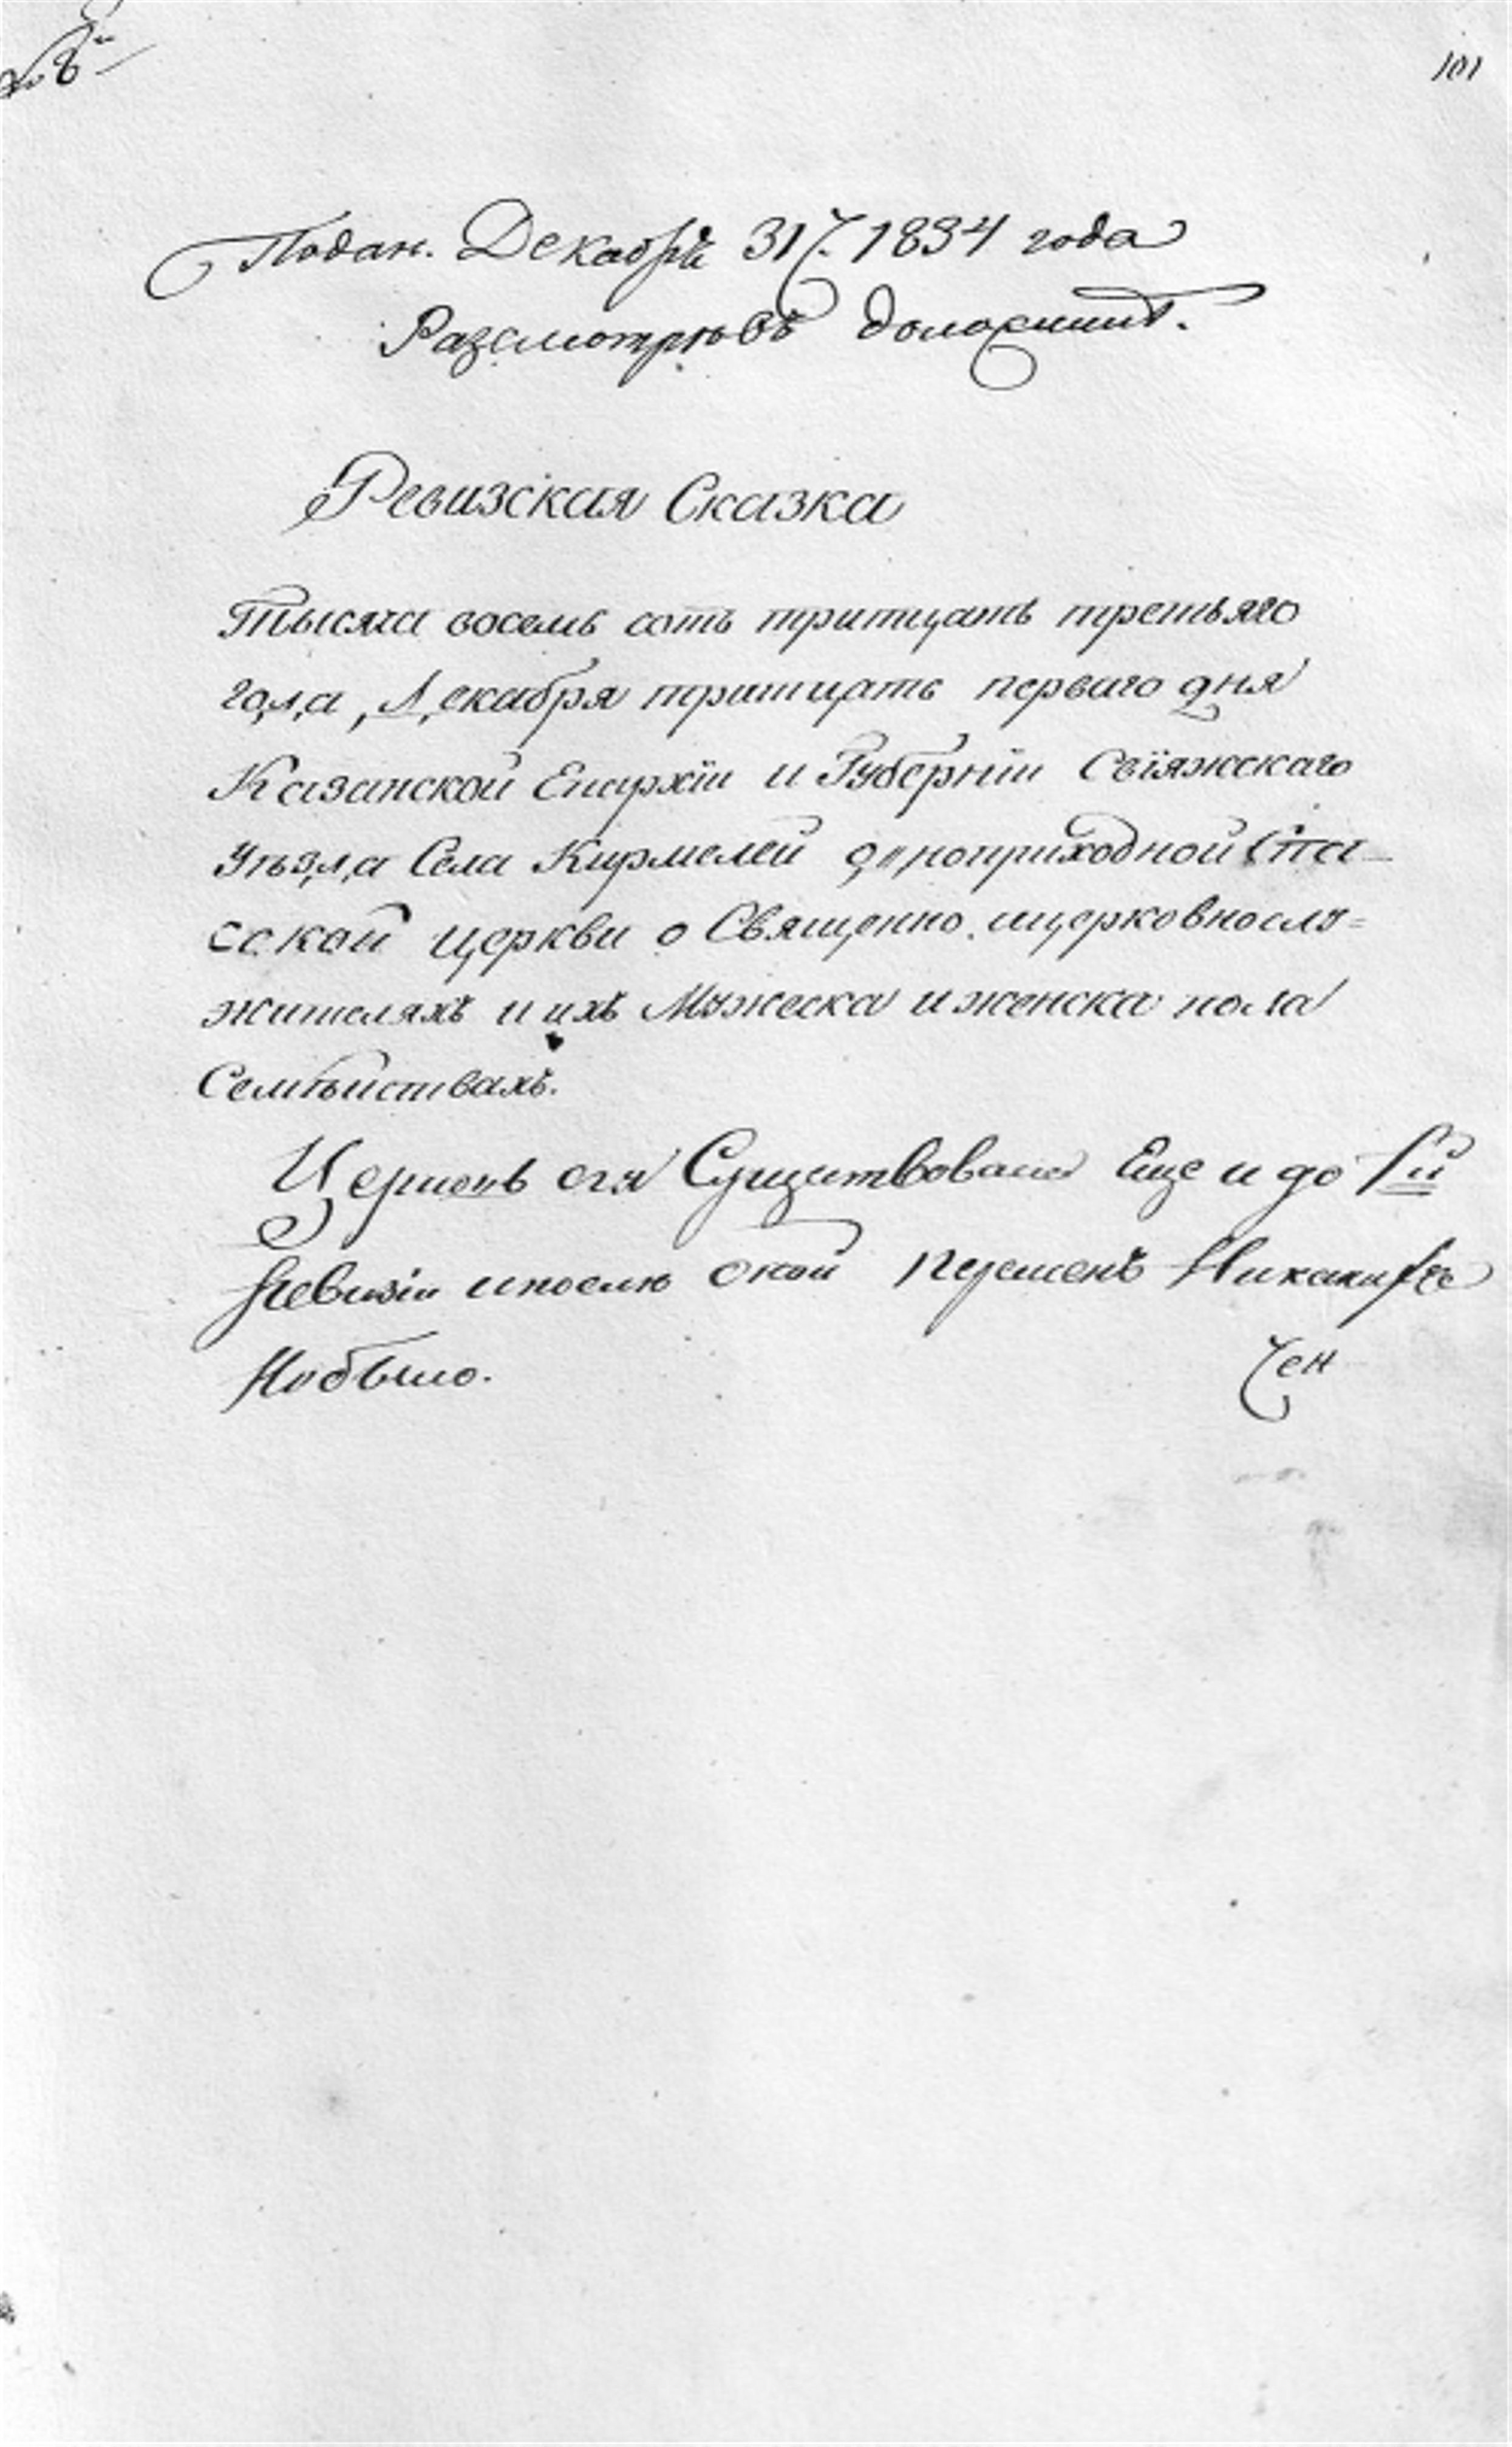 101
Подан. Декабря 31. 1834 года
Разсмотрѣвъ доложить.
Ревизская Сказка
Тысяча восемь сотъ тритцать третьяго
года, Декабря тритцать перваго дня
Казанской Епархïи и Губернïи Свïяжскаго
уѣзда Села Кирмелей одноприходной Спа-
сской церкви о Священно, ицерковнослу=
жителяхъ и ихъ Мужеска и женска пола
Семѣйствахъ.
Церковь сiя Существовала Еще и до 7й
Ревизiи ипослѣ оной Перемѣнъ Никакихъ
Небыло.